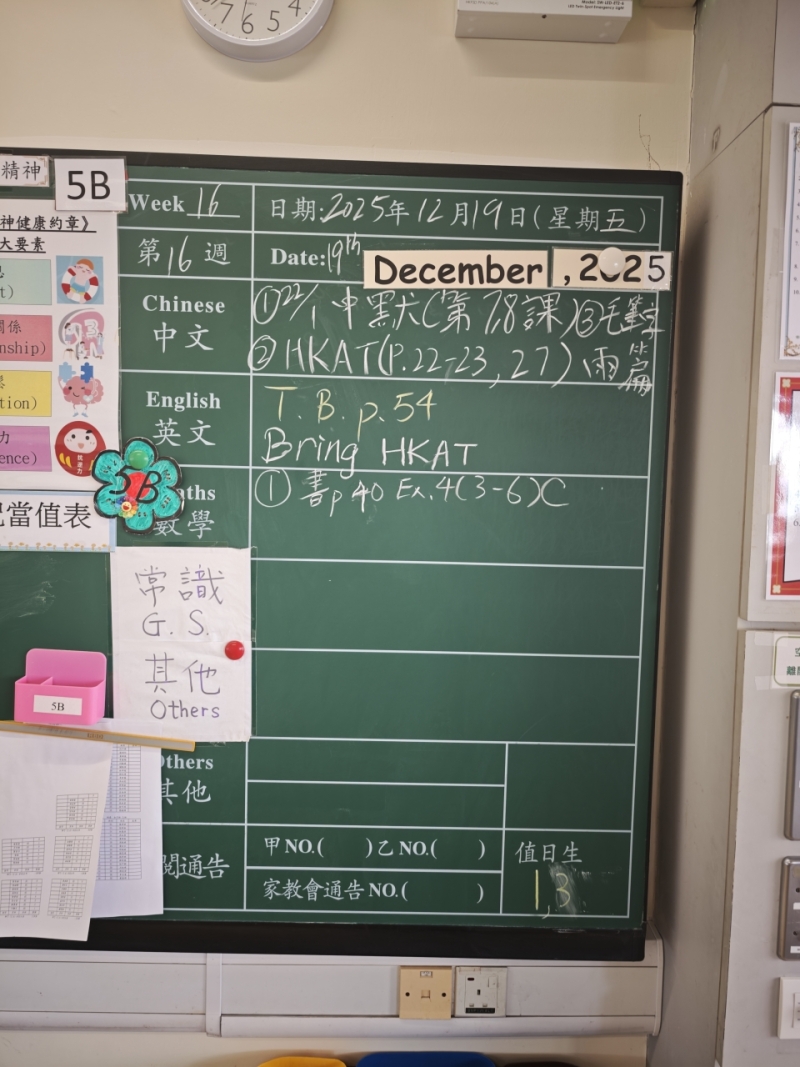 7 6 5 4
精神
5B
神健康約章》
大要素
關係
nship)
tion)
力
ence)
Week 16
日期:2025年12月19日(星期五)
第16週
Date:19th December, 2025
Chinese
中文
①22/1 中默(第7,8課)③毛筆字
②HKAT(P.22-23, 27) 兩篇
English
英文
T. B. p.54
Bring HKAT
5B
ths
數學
① 書p40 Ex.4(3-6)C
當值表
常識
G. S.
其他
Others
5B
Others
其他
閱通告
甲NO.( )乙NO.( )
家教會通告NO.( )
值日生
1,3